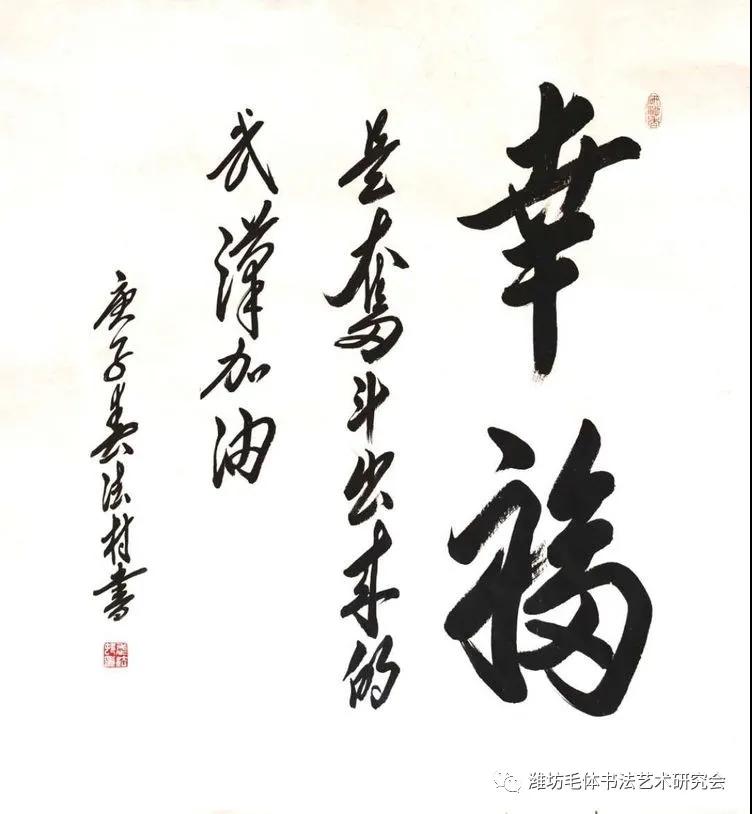 幸福
是奮斗出来的
武漢加油
庚子春法村書
潍坊毛体书法艺术研究会